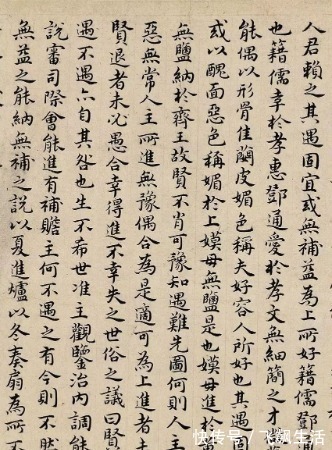 人君賴之其遇固宜或無補益為上所好籍儒鄧通
也籍儒幸於孝惠鄧通愛於孝文無細簡之才
能偶以形骨佳嫺皮媚色稱夫好容人所好也其遇
或以醜面惡色稱媚於上嫫母無鹽是也嫫母進於
無鹽納於齊王故賢不肖可豫知遇難先圖何則人主
惡無常人主所進無豫偶合為是適可為上進者未
賢退者未必愚合幸得進不幸失之世俗之議曰賢
遇不遇亦自其咎也生不希世准主觀鑒治內調能
說審司際會能進有補贍主何不遇之有今則不然
無益之能納無補之說以夏進爐以冬奏扇為所不
快传号/飞飙生活